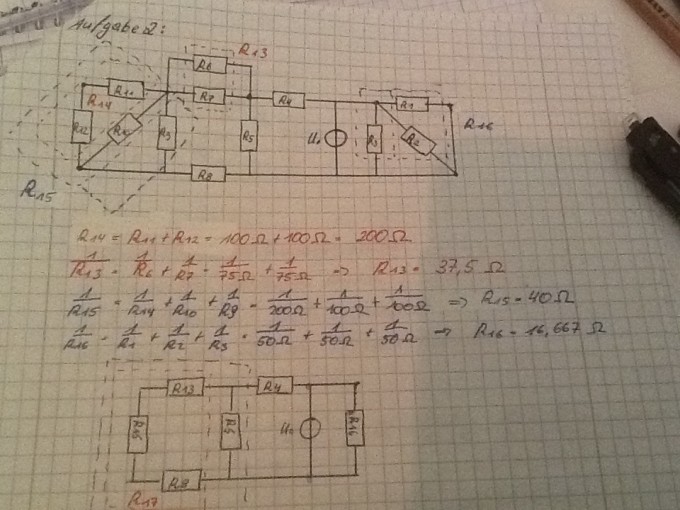 Aufgabe 2:
R13
R6
R11 R7 R4 R1
R14
R12 R10 R9 R5 U0 R3 R2 R16
R8
R15
R14 = R11 + R12 = 100Ω + 100Ω = 200Ω
1/R13 = 1/R6 + 1/R7 = 1/75Ω + 1/75Ω => R13 = 37,5 Ω
1/R15 = 1/R14 + 1/R10 + 1/R9 = 1/200Ω + 1/100Ω + 1/100Ω => R15 = 40Ω
1/R16 = 1/R1 + 1/R2 + 1/R3 = 1/50Ω + 1/50Ω + 1/50Ω => R16 = 16,667 Ω
R13 R4
R15 R5 U0 R16
R8
R17